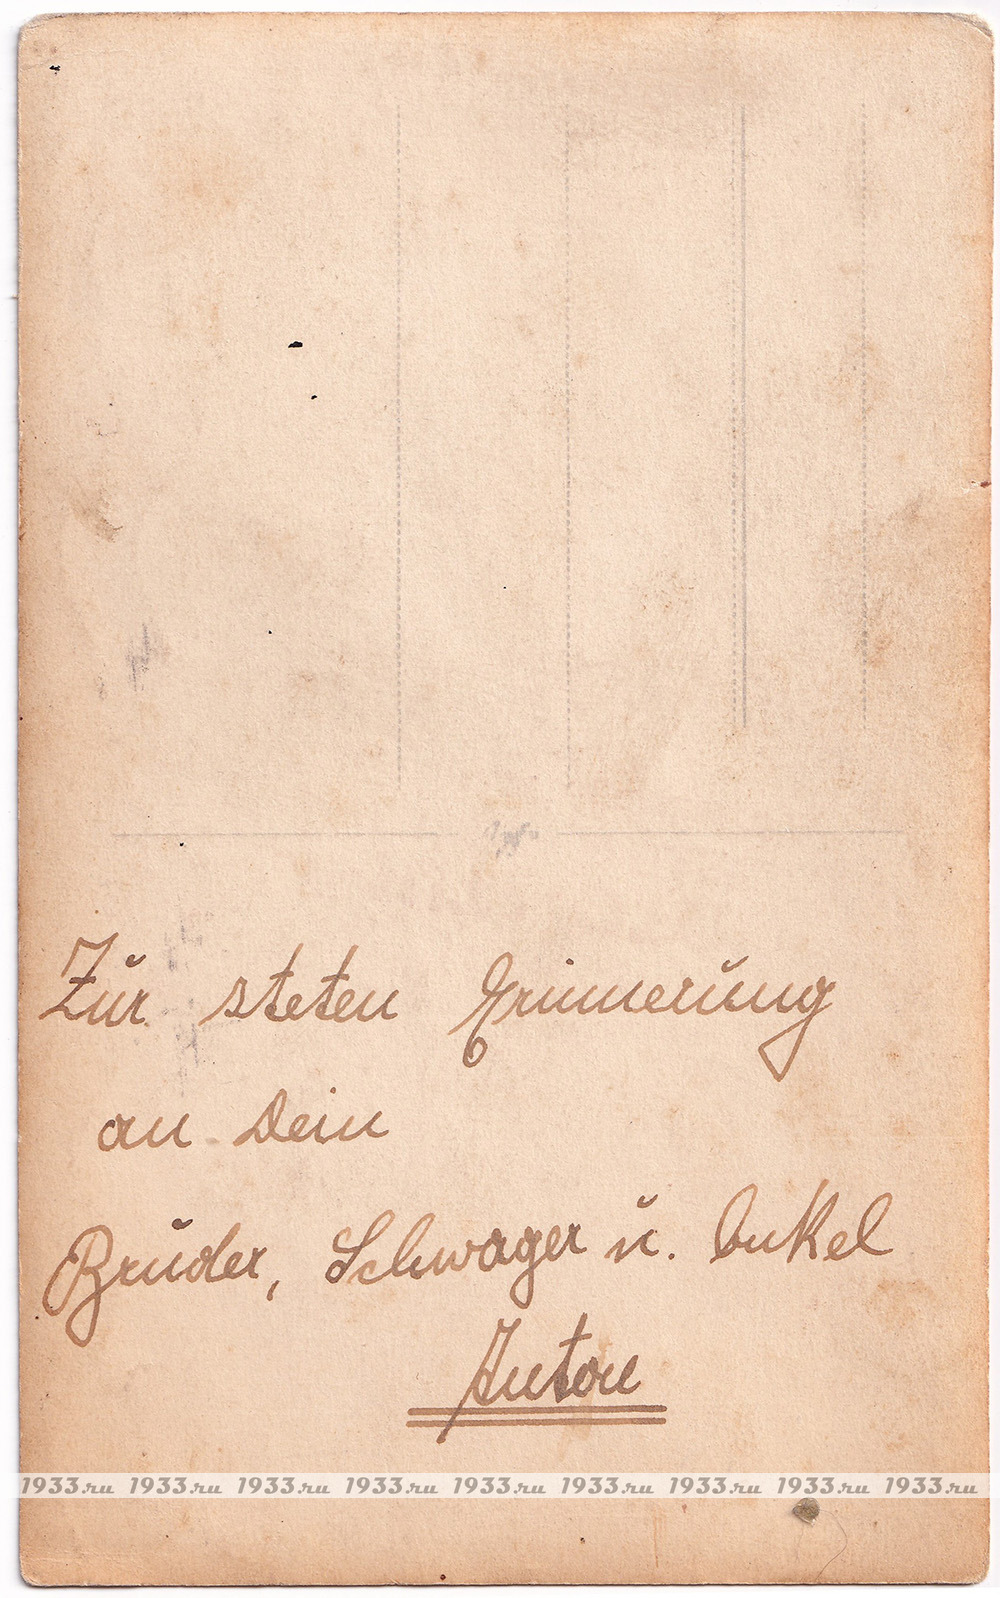 Zur steten Erinnerung
an Dein
Bruder, Schwager u. Onkel
Anton
1933.ru 1933.ru 1933.ru 1933.ru 1933.ru 1933.ru 1933.ru 1933.ru 1933.ru